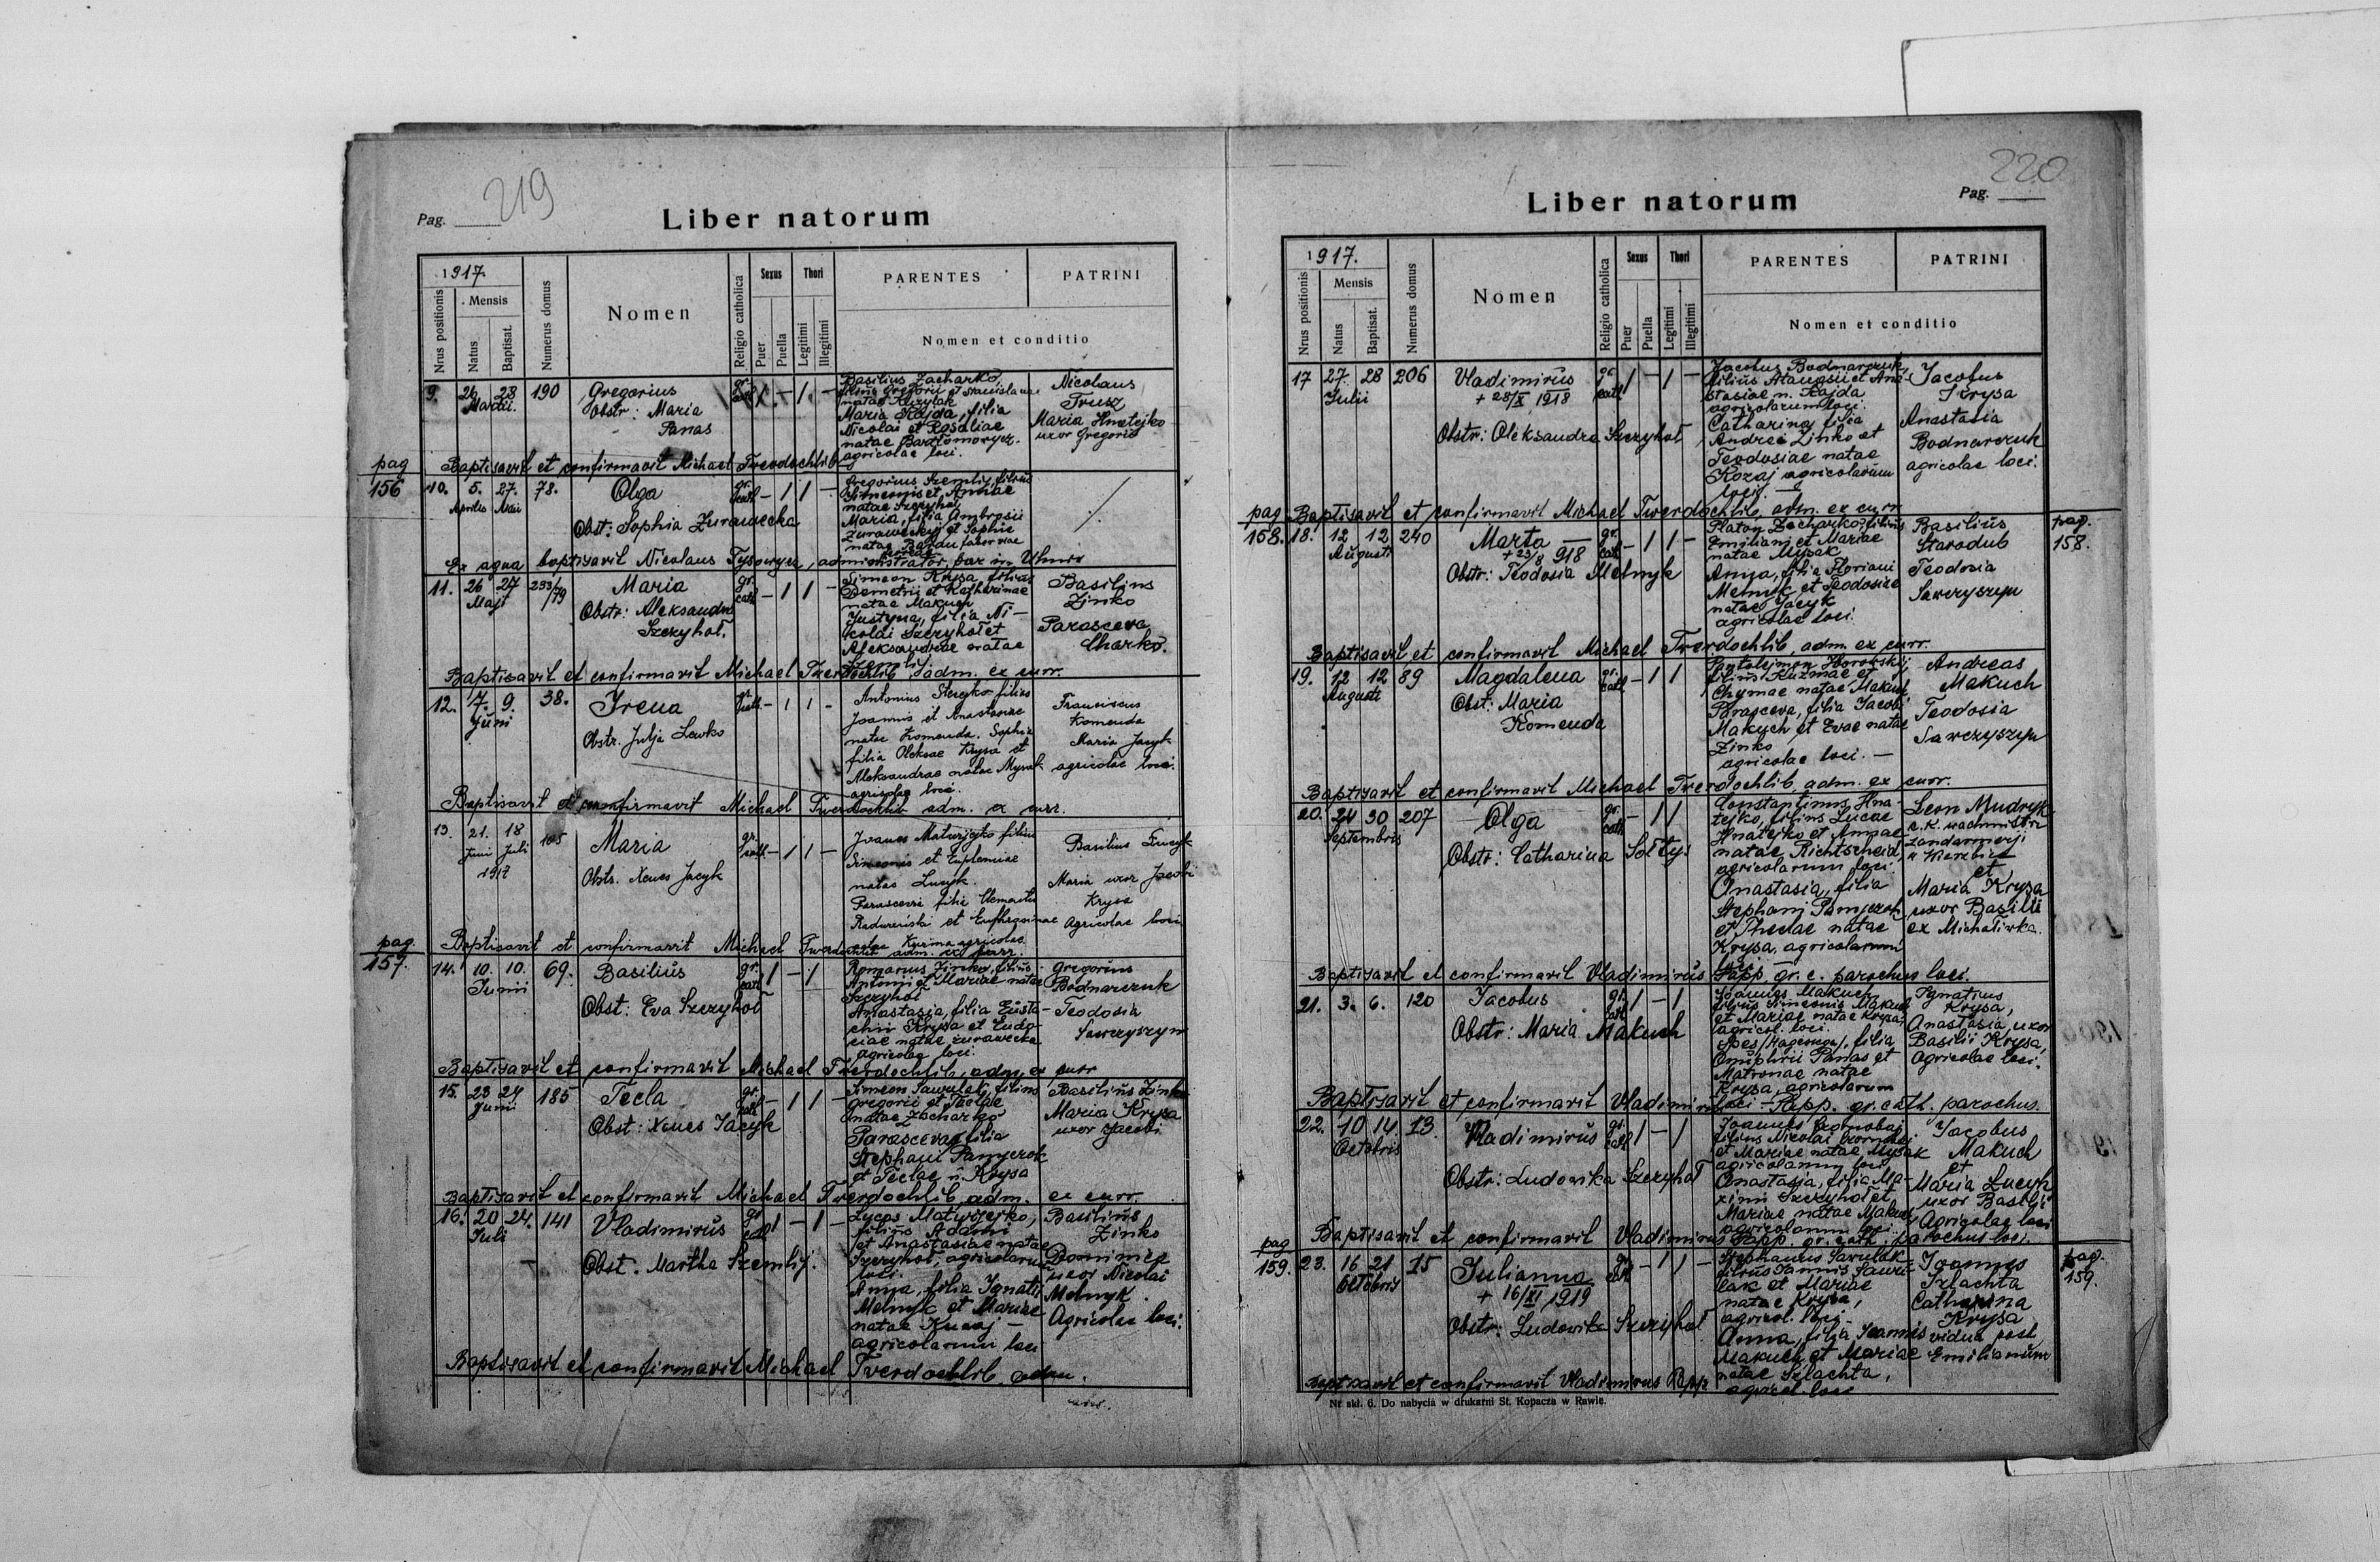 219
Pag.
Liber natorum
1917.
Nrus positionis
Mensis
Natus
Baptisat.
Numerus domus
Nomen
Religio catholica
Sexus
Puer
Puella
Thori
Legitimi
Illegitimi
PARENTES
PATRINI
Nomen et conditio
9. 26 28 190 Gregorius gr. cath. 1 - 1 -
Martii.
Obstr: Maria
Panas
Basilius Zacharko,
filius Gregorii et Stanislavae
natae Kuzylak
Maria Kajda, filia
Nicolai et Rosaliae
natae Bartlomowycz.
agricolae loci.
Nicolaus
Trusz
Maria Hnatejko
uxor Gregorii
Baptisavit et confirmavit Michael Twerdochlib
pag
156
10. 5. 27. 78. Olga gr. cath - 1 1 -
Aprilis Maii
Obst: Sophia Zurawecka
Gregorius Szemlij, filius
Simeonis et Annae
natae Szczyhoł
Maria, filia Ambrosii
Zuraweckij et Sophie
natae
Ex aqua baptisavit Nicolaus administrator par. in Uhniv
11. 26 27 233/79 Maria gr. cath - 1 1 -
Maji
Obstr: Aleksandra
Szczyhoł.
Simeon Krysa, filius
Demetrii et Katharinae
natae Makuch
Justyna, filia Ni-
kolai Szczyhoł et
Aleksandrae natae
Szemlij.
Basilius
Zinko
Parasceva
Charko.
Baptisavit et confirmavit Michael Twerdochlib, adm. ex curr.
12. 7. 9. 38. Irena gr. cath - 1 1 -
Juni
Obstr. Julja Lewko
Antonius filius
Joannis et Anastasiae
natae Komenda. Sophia
filia Oleksae Krysa et
Aleksandrae natae Mysak
agricolae loci.
Franciscus
Komenda
Maria Jacyk
agricolae loci.
Baptisavit et confirmavit Michael Twerdochlib adm. ex curr.
13. 21. 18 105 Maria gr. cath - 1 1 -
Juni Juli
1917
Obstr. Xenes Jacyk
Joanes Matwijejko filius
Simeonis et Euphemiae
natae Lucyk.
Parascevia filia Clementis
Radureński et Euphrosinae
natae agricolae
Basilius Lucyk
Maria uxor Jacobi
Krysa
Agricolae loci
Baptisavit et confirmavit Michael Twerdochlib adm. ex curr.
pag.
157.
14. 10. 10. 69. Basilius gr. cath. 1 - 1
Junii
Obst: Eva Szczyhoł
Romanus Zinko, filius
Antonii et Mariae natae
Szczyhoł
Anastasia, filia Eusta-
chii Krysa et Eudo-
ciae natae Zurawecka
agricolae loci.
Gregorius
Bodnarczuk
Teodosia
Sawczyszyn
Baptisavit et confirmavit Michael Twerdochlib, adm. ex curr
15. 23 24 185 Tecla gr. cath - 1 1 -
Junii
Obst: Xenes Jacyk
Simeon Sawulak, filius
Gregorii et Teclae
natae Zacharko
Parasceva, filia
Stephani Pamjerok
et Teclae n. Krysa
Basilius Zinko
Maria Krysa
uxor Jacobi
Baptisavit et confirmavit Michael Twerdochlib adm. ex curr.
16. 20 24. 141 Vladimirus gr cath 1 - 1 -
Juli
Obst. Martha Szemlij.
Lucas Matwijejko,
filius Adami
et Anastasiae natae
Szczyhoł, agricolarum
loci.
Anna, filia Ignatii
Melnyk et Mariae
natae Kunaj -
agricolarum loci
Basilius
Zinko
Dominica
uxor Nicolai
Melnyk.
Agricolae loci.
Baptisavit et confirmavit Michael Twerdochlib adm.
220
Pag.
Liber natorum
1917.
Nrus positionis
Mensis
Natus
Baptisat.
Numerus domus
Nomen
Religio catholica
Sexus
Puer
Puella
Thori
Legitimi
Illegitimi
PARENTES
PATRINI
Nomen et conditio
17 27. 28 206 Vladimirus gr. cath 1 - 1 -
Julii
+ 28/X 1918
Obstr: Oleksandra Szczyhoł
Jacobus Bodnarczuk,
filius Atanasii et Ana-
stasiae n. Kajda
agricolarum loci.
Catharina, filia
Andrei Zinko et
Teodosiae natae
Kozaj agricolarum
loci. -
Jacobus
Krysa
Anastasia
Bodnarczuk
agricolae loci.
Baptisavit et confirmavit Michael Twerdochlib, adm. ex curr
pag
158.
18. 12 12 240 Marta gr. cath - 1 1 -
Augusti
+ 23/8 918
Obstr: Teodosia Melnyk
Platon Zacharko, filius
Emiliani et Mariae
natae Mysak
Anna, filia Floriani
Melnyk et Teodosiae
natae Jacyk
agricolae loci.
Basilius
Starodub
Teodosia
Sawczyszyn
pag.
158.
Baptisavit et confirmavit Michael Twerdochlib, adm. ex curr.
19. 12 12 89 Magdalena gr. cath - 1 1
Augusti
Obst: Maria
Komenda
Pantalejmon Horokskij
filius Kuzmae et
Chymae natae Makuch
Parasceva, filia Jacobi
Makuch et Evae natae
Zinko
agricolae loci. -
Andreas
Makuch
Teodosia
Sawczyszyn
Baptisavit et confirmavit Michael Twerdochlib, adm. ex curr.
20. 24 30 207 Olga gr. cath - 1 1
Septembris
Obstr: Catharina Sołtys
Constantinus Hna-
tejko, filius Lucae
Hnatejko et Annae
natae Richtscheid,
agricolarum loci.
Anastasia, filia
Stephani Pamjerok
et Theclae natae
Krysa, agricolarum
loci.
Leon Mudryk
c. k. wachmistrz
żandarmerji
et
Maria Krysa
uxor Basilii
ex Michalivka.
Baptisavit et confirmavit Vladimirus Papp. gr. c. parochus loci.
21. 3. 6. 120 Jacobus gr. cath 1 - 1
Obstr: Maria Makuch
Joannes Makuch
filius Simeonis Makuch
et Mariae natae Krysa,
agricol. loci.
Spes /Надежда/, filia
Onuphrii Panas et
Matronae natae
Krysa, agricolarum
loci -
Ignatius
Krysa,
Anastasia, uxor
Basilii Krysa,
Agricolae loci.
Baptisavit et confirmavit Vladimirus Papp. gr. cath. parochus.
22. 10 14 13. Vladimirus gr. cath 1 - 1
Octobris
Obstr: Ludovika Szczyhoł
Joannes
filius Nicolai
et Mariae natae Mysak
agricolarum loci
Anastasia, filia Ma-
ximi Szczyhoł et
Mariae natae Makuch
agricolarum loci.
Jacobus
Makuch
et
Maria Lucyk
uxor Basilii
Agricolae loci
Baptisavit et confirmavit Vladimirus Papp. gr. cath. parochus loci.
pag
159.
23. 16 21 15 Julianna gr. cath - 1 1 -
Octobris
+ 16/XI 1919
Obstr: Ludovika Szczyhoł
Stephanus Savulak
filius Joannis Savu-
lak et Mariae
natae Krysa,
agricol. loci.
Anna, filia Joannis
Makuch et Mariae
natae Szlachta,
agricol. loci
Joannes
Szlachta
Catharina
Krysa
vidua post
Emilianum
pag.
159.
Baptisavit et confirmavit Vladimirus Papp
Nr skł. 6. Do nabycia w drukarni St. Kopacza w Rawie.